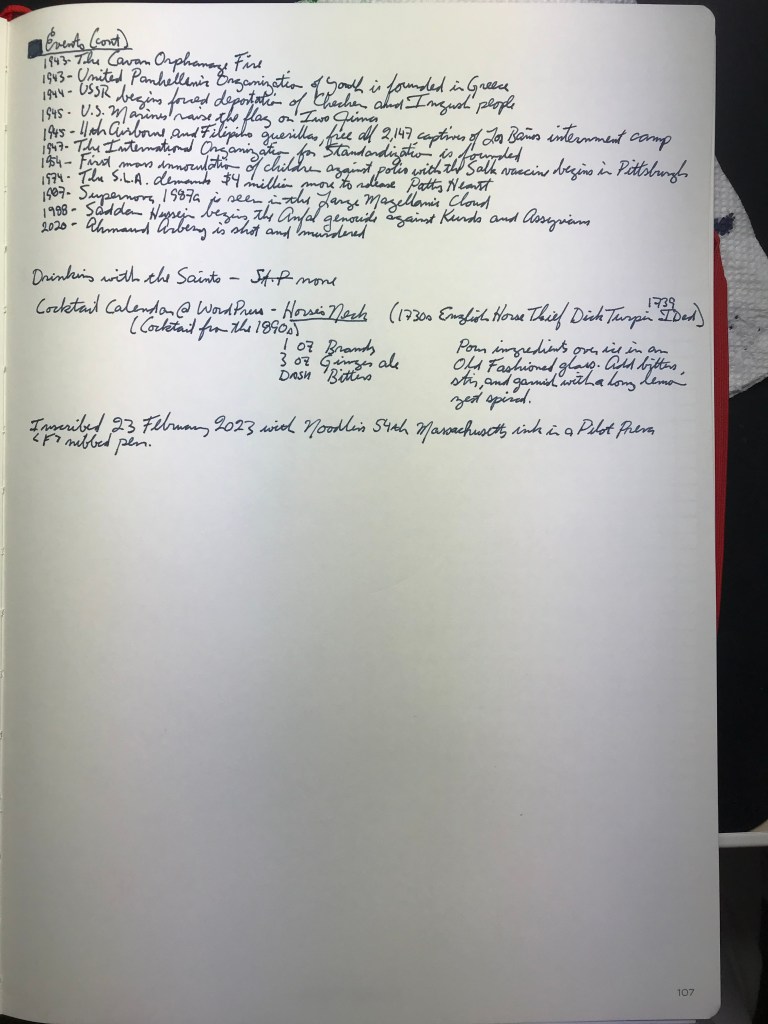 Events (cont)
1943 - The Cavan Orphanage Fire
1943 - United Panhellenic Organization of Youth is founded in Greece
1944 - USSR begins forced deportation of Chechen and Ingush people
1945 - U.S. Marines raise the flag on Iwo Jima
1945 - 11th Airborne and Filipino guerillas, free all 2,147 captives of Los Baños internment camp
1947 - The International Organization for Standardization is founded
1954 - First mass innoculation of children against polio with the Salk vaccine begins in Pittsburgh
1974 - The S.L.A. demands $4 million more to release Patty Hearst
1987 - Supernova 1987a is seen in the Large Magellanic Cloud
1988 - Saddam Hussein begins the Anfal genocide against Kurds and Assyrians
2020 - Ahmaud Arbery is shot and murdered
Drinking with the Saints - none
Cocktail Calendar @ WordPress - Horse's Neck (1730s English Horse Thief Dick Turpin ID'ed) 1739
(Cocktail from the 1890s)
1 oz Brandy
3 oz Ginger ale
Dash Bitters
Pour ingredients over ice in an
Old Fashioned glass. Add bitters,
stir, and garnish with a long lemon
zest spiral.
Inscribed 23 February 2023 with Noodler's 54th Massachusetts ink in a Pilot Prera
<F> nibbed pen.
107